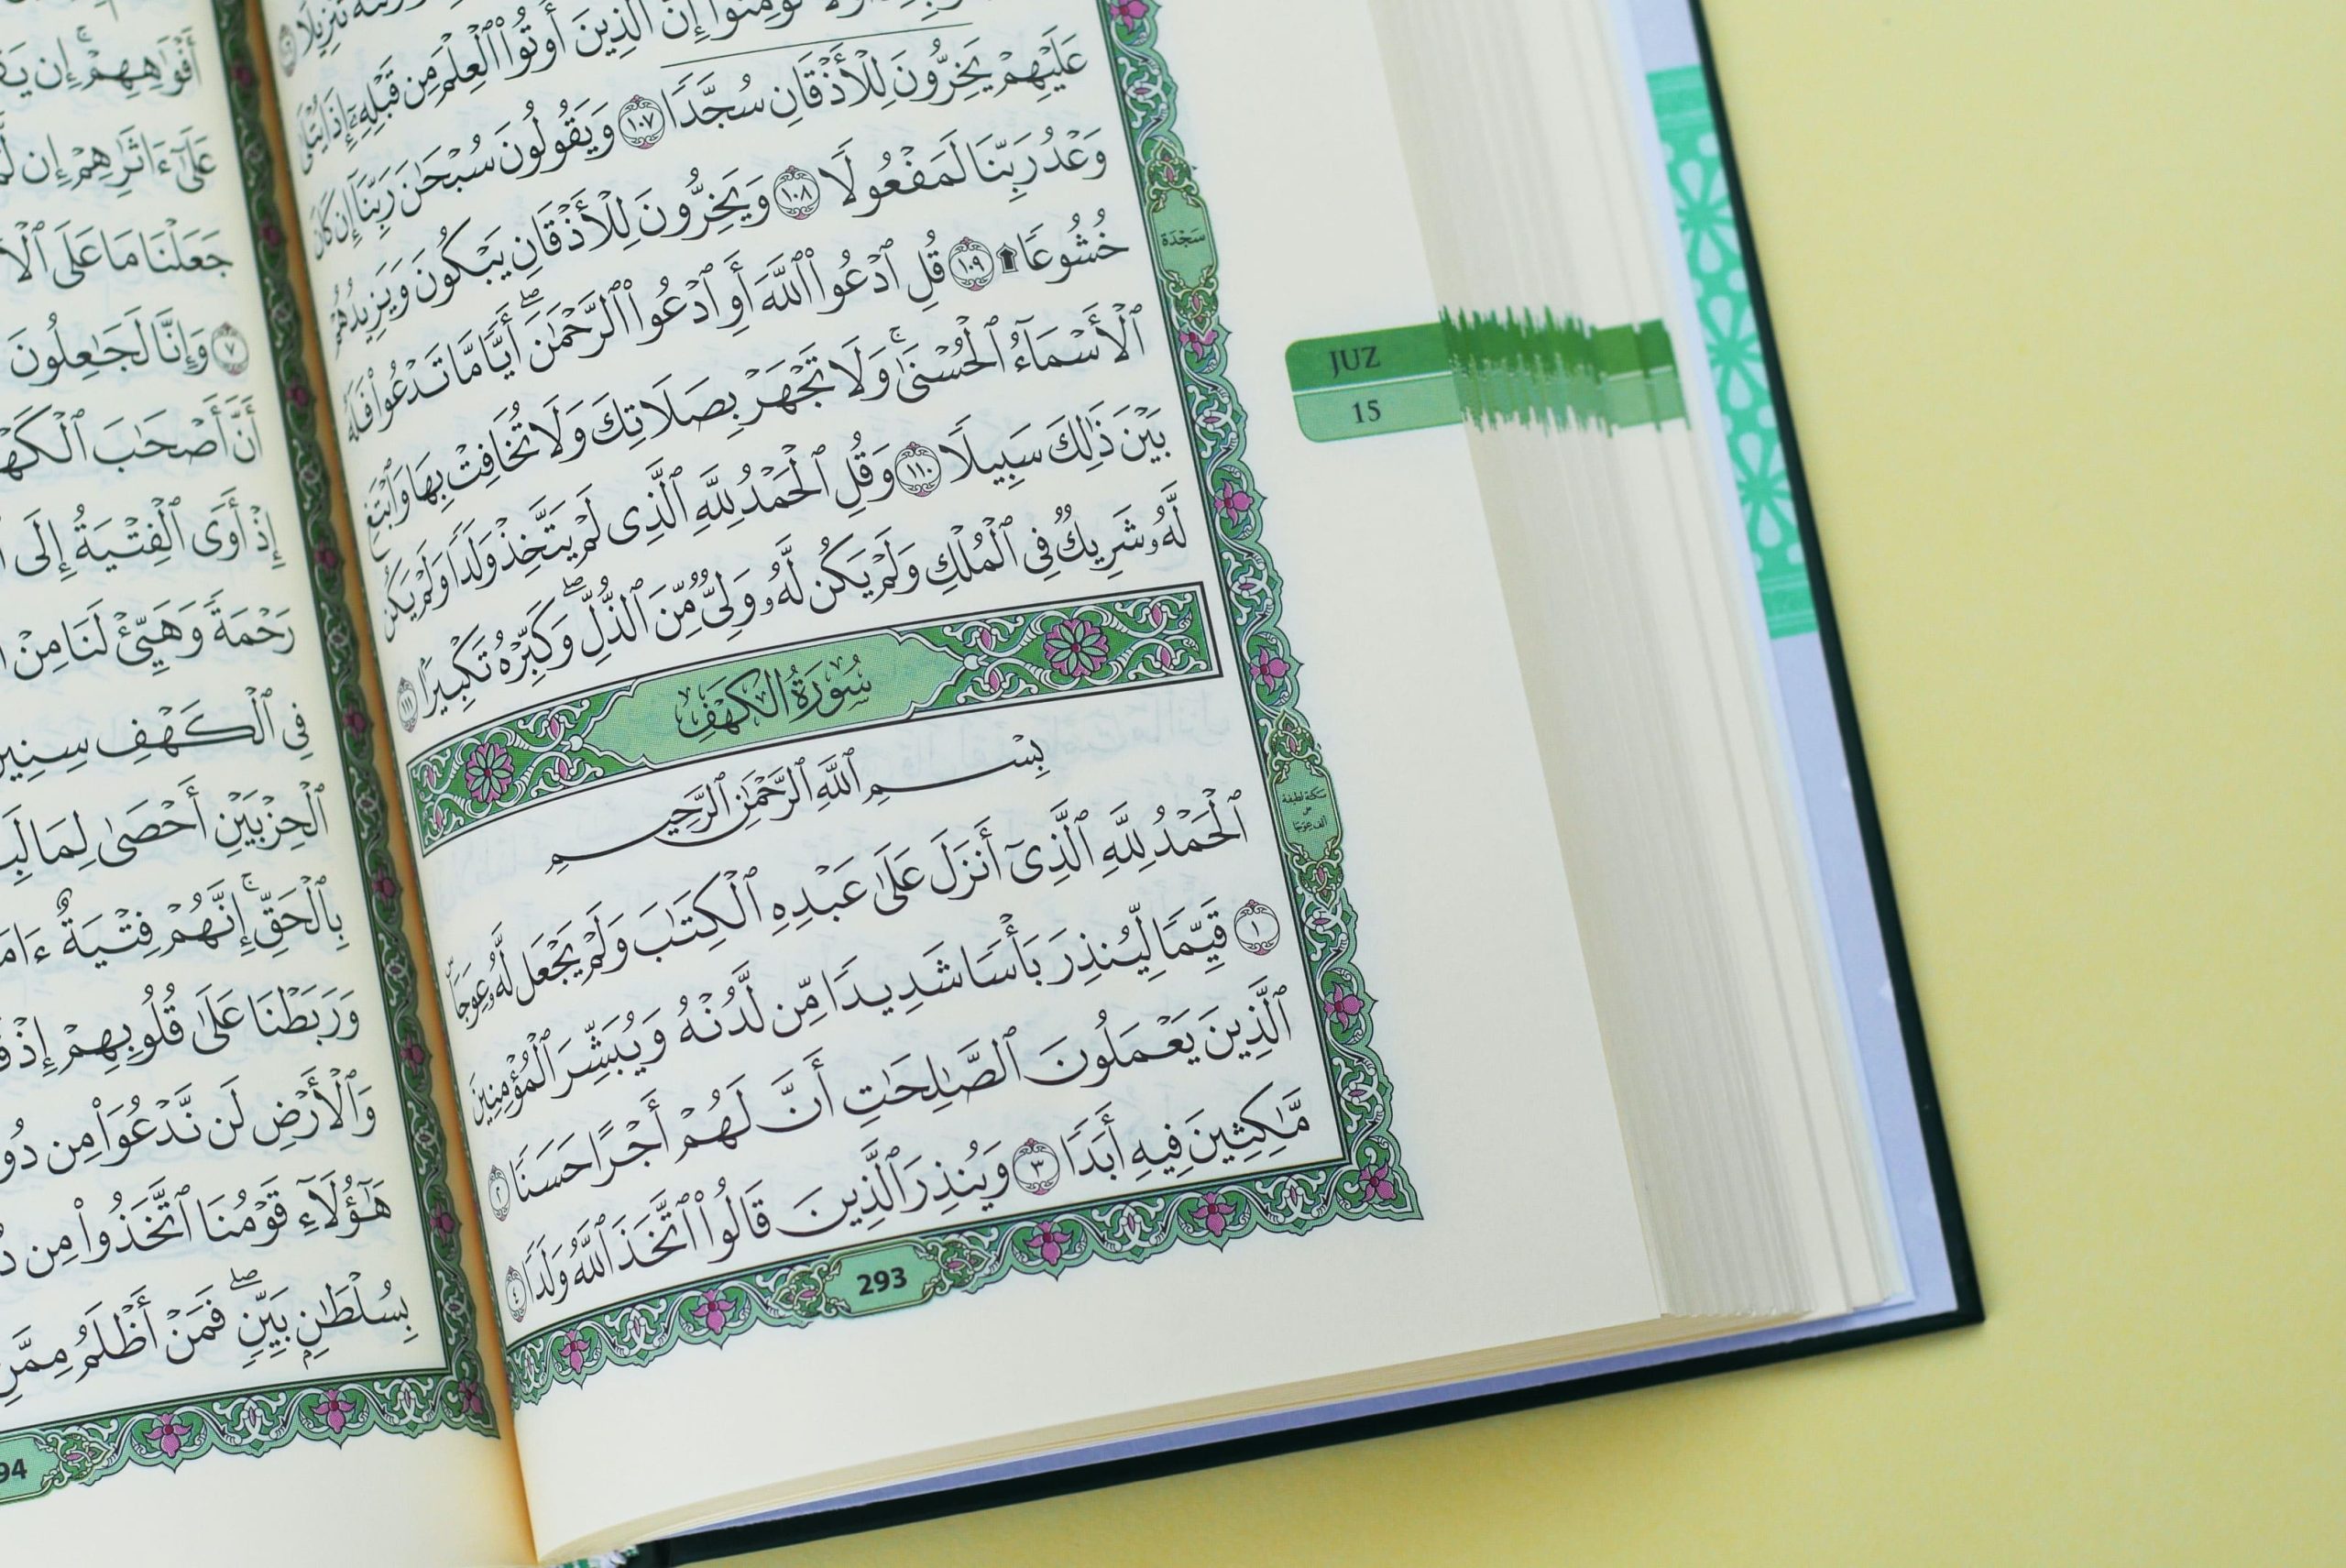 تُؤْمِنُوٓا۟ إِنَّ ٱلَّذِينَ أُوتُوا۟ ٱلْعِلْمَ مِن قَبْلِهِۦٓ إِذَا يُتْلَىٰ
عَلَيْهِمْ يَخِرُّونَ لِلْأَذْقَانِ سُجَّدًا ١٠٧ وَيَقُولُونَ سُبْحَٰنَ رَبِّنَآ إِن كَانَ
وَعْدُ رَبِّنَا لَمَفْعُولًا ١٠٨ وَيَخِرُّونَ لِلْأَذْقَانِ يَبْكُونَ وَيَزِيدُهُمْ
خُشُوعًا ۩ ١٠٩ قُلِ ٱدْعُوا۟ ٱللَّهَ أَوِ ٱدْعُوا۟ ٱلرَّحْمَٰنَ ۖ أَيًّا مَّا تَدْعُوا۟ فَلَهُ
ٱلْأَسْمَآءُ ٱلْحُسْنَىٰ ۚ وَلَا تَجْهَرْ بِصَلَاتِكَ وَلَا تُخَافِتْ بِهَا وَٱبْتَغِ
بَيْنَ ذَٰلِكَ سَبِيلًا ١١٠ وَقُلِ ٱلْحَمْدُ لِلَّهِ ٱلَّذِى لَمْ يَتَّخِذْ وَلَدًا وَلَمْ يَكُن
لَّهُۥ شَرِيكٌ فِى ٱلْمُلْكِ وَلَمْ يَكُن لَّهُۥ وَلِىٌّ مِّنَ ٱلذُّلِّ ۖ وَكَبِّرْهُ تَكْبِيرًۢا ١١١
سُورَةُ الكَهْفِ
بِسْمِ ٱللَّهِ ٱلرَّحْمَٰنِ ٱلرَّحِيمِ
ٱلْحَمْدُ لِلَّهِ ٱلَّذِىٓ أَنزَلَ عَلَىٰ عَبْدِهِ ٱلْكِتَٰبَ وَلَمْ يَجْعَل لَّهُۥ عِوَجَاۜ
١ قَيِّمًا لِّيُنذِرَ بَأْسًا شَدِيدًا مِّن لَّدُنْهُ وَيُبَشِّرَ ٱلْمُؤْمِنِينَ
ٱلَّذِينَ يَعْمَلُونَ ٱلصَّٰلِحَٰتِ أَنَّ لَهُمْ أَجْرًا حَسَنًا ٢
مَّٰكِثِينَ فِيهِ أَبَدًا ٣ وَيُنذِرَ ٱلَّذِينَ قَالُوا۟ ٱتَّخَذَ ٱللَّهُ وَلَدًا ٤
293
سَجْدَة
سكتة لطيفة
على
ألف عِوَجَا
JUZ
15
أَفْوَٰهِهِمْ ۚ إِن
عَلَىٰٓ ءَاثَٰرِهِمْ إِن
جَعَلْنَا مَا عَلَى
٧ وَإِنَّا لَجَٰعِلُونَ
أَنَّ أَصْحَٰبَ
إِذْ أَوَى ٱلْفِتْيَةُ إِلَى
رَحْمَةً وَهَيِّئْ لَنَا مِنْ
فِى ٱلْكَهْفِ
ٱلْحِزْبَيْنِ أَحْصَىٰ
بِٱلْحَقِّ ۚ إِنَّهُمْ فِتْيَةٌ
وَرَبَطْنَا عَلَىٰ قُلُوبِهِمْ إِذْ
وَٱلْأَرْضِ لَن نَّدْعُوَا۟ مِن
هَٰٓؤُلَآءِ قَوْمُنَا ٱتَّخَذُوا۟ مِن
بِسُلْطَٰنٍۭ بَيِّنٍ ۖ فَمَنْ أَظْلَمُ
94